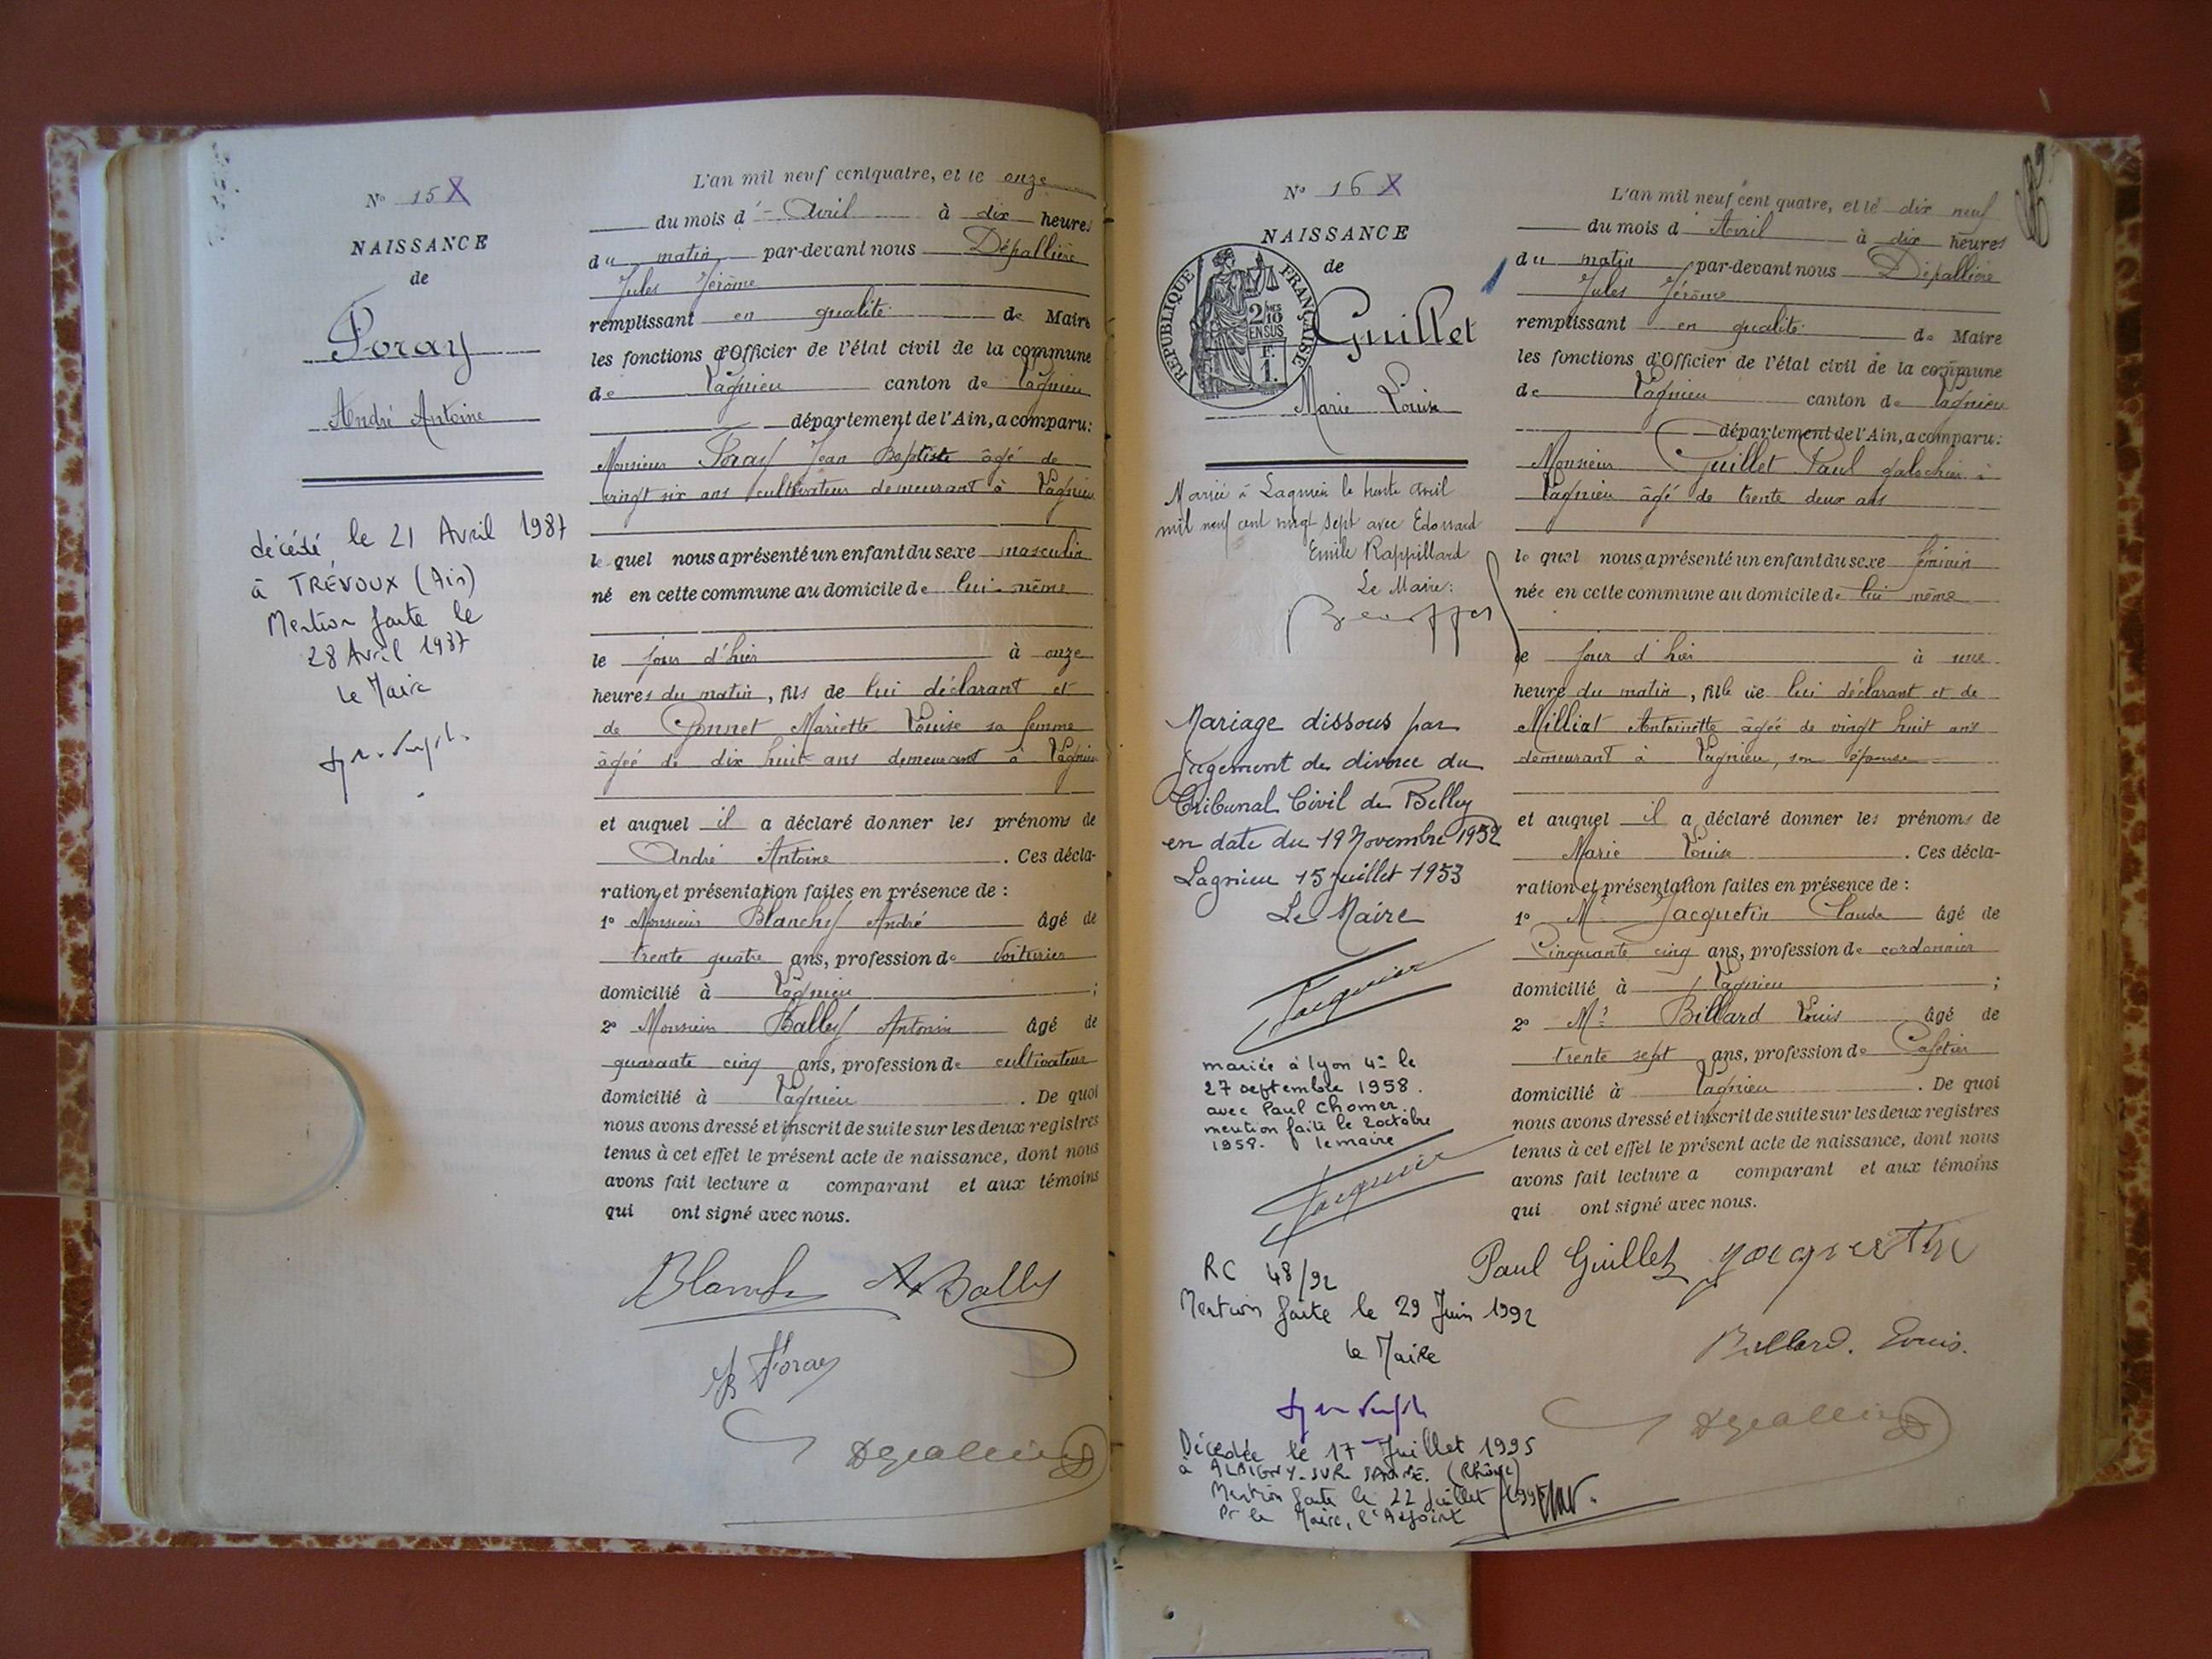 N° 15 X
NAISSANCE
de
Foray
André Antoine
décédé le 21 Avril 1987
à TRÉVOUX (Ain)
Mention faite le
28 Avril 1987
le Maire
L'an mil neuf cent quatre, et le onze
du mois d' Avril à dix heures
du matin par-devant nous Dépallière
Jules Jérôme
remplissant en qualité de Maire
les fonctions d'Officier de l'état civil de la commune
de Lagnieu canton de Lagnieu
département de l'Ain, a comparu:
Monsieur Foray Jean Baptiste âgé de
vingt six ans cultivateur demeurant à Lagnieu
lequel nous a présenté un enfant du sexe masculin
né en cette commune au domicile de lui-même
le jour d'hier à onze
heures du matin, fils de lui déclarant et
de Gonnet Mariette Louise sa femme
âgée de dix huit ans demeurant à Lagnieu
et auquel il a déclaré donner les prénoms de
André Antoine . Ces décla-
ration et présentation faites en présence de :
1° Monsieur Blanchy André âgé de
trente quatre ans, profession de voiturier
domicilié à Lagnieu ;
2° Monsieur Bally Antonin âgé de
quarante cinq ans, profession de cultivateur
domicilié à Lagnieu . De quoi
nous avons dressé et inscrit de suite sur les deux registres
tenus à cet effet le présent acte de naissance, dont nous
avons fait lecture a comparant et aux témoins
qui ont signé avec nous.
Blanchy A. Bally
JB Foray
Depallière
N° 16 X
NAISSANCE
de
REPUBLIQUE FRANÇAISE
2/10 EN SUS
F. 1.
Guillet
Marie Louise
Mariée à Lagnieu le trente avril
mil neuf cent vingt sept avec Edouard
Emile Rappillard
Le Maire:
Mariage dissous par
jugement de divorce du
Tribunal Civil de Belley
en date du 19 Novembre 1952
Lagnieu 15 juillet 1953
Le Maire
Jacquier
mariée à lyon 4e le
27 septembre 1958.
avec Paul Chomer.
mention faite le 2 octobre
1958. le maire
Jacquier
RC 48/92
Mention faite le 29 Juin 1992
le Maire
Décédée le 17 Juillet 1995
à ALBIGNY-SUR-SAONE. (Rhône)
Mention faite le 22 juillet 1995
Pr le Maire, l'Adjoint
L'an mil neuf cent quatre, et le dix neuf
du mois d' Avril à dix heures
du matin par-devant nous Dépallière
Jules Jérôme
remplissant en qualité de Maire
les fonctions d'Officier de l'état civil de la commune
de Lagnieu canton de Lagnieu
département de l'Ain, a comparu:
Monsieur Guillet Paul galochier à
Lagnieu âgé de trente deux ans
lequel nous a présenté un enfant du sexe féminin
née en cette commune au domicile de lui même
le jour d'hier à une
heure du matin, fille de lui déclarant et de
Milliat Antoinette âgée de vingt huit ans
demeurant à Lagnieu, son épouse
et auquel il a déclaré donner les prénoms de
Marie Louise . Ces décla-
ration et présentation faites en présence de :
1° Mr Jacquetin Claude âgé de
Cinquante cinq ans, profession de cordonnier
domicilié à Lagnieu ;
2° Mr Billard Louis âgé de
trente sept ans, profession de Cafetier
domicilié à Lagnieu . De quoi
nous avons dressé et inscrit de suite sur les deux registres
tenus à cet effet le présent acte de naissance, dont nous
avons fait lecture a comparant et aux témoins
qui ont signé avec nous.
Paul Guillet Jacquetin
Billard. Louis.
Depallière